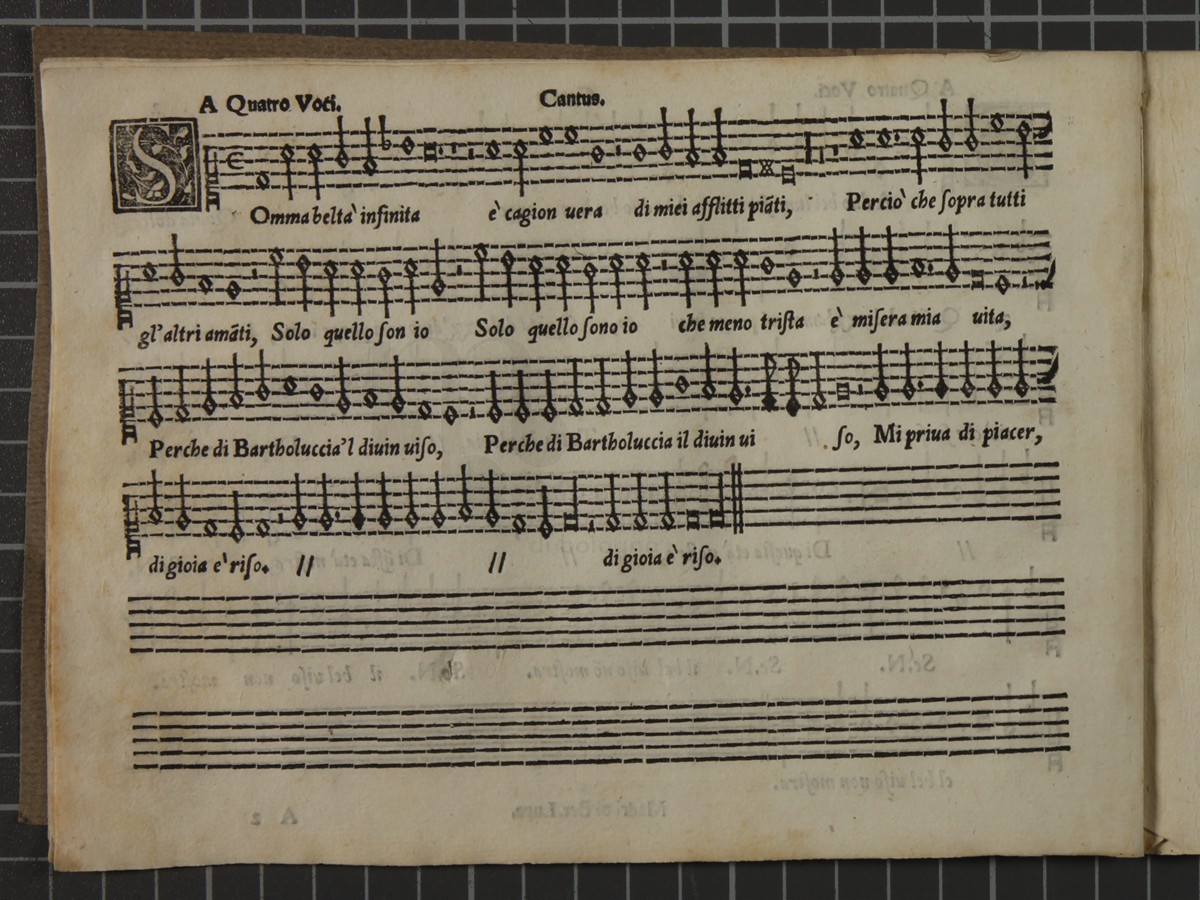 A Quatro Voci. Cantus.
SOmma belta` infinita è cagion uera di miei afflitti piāti, Percio` che ſopra tutti
gl'altri amāti, Solo quello ſon io Solo quello ſono io che meno triſta è miſera mia uita,
Perche di Bartholuccia'l diuin uiſo, Perche di Bartholuccia il diuin ui // ſo, Mi priua di piacer,
di gioia e` riſo. // // di gioia è riſo.